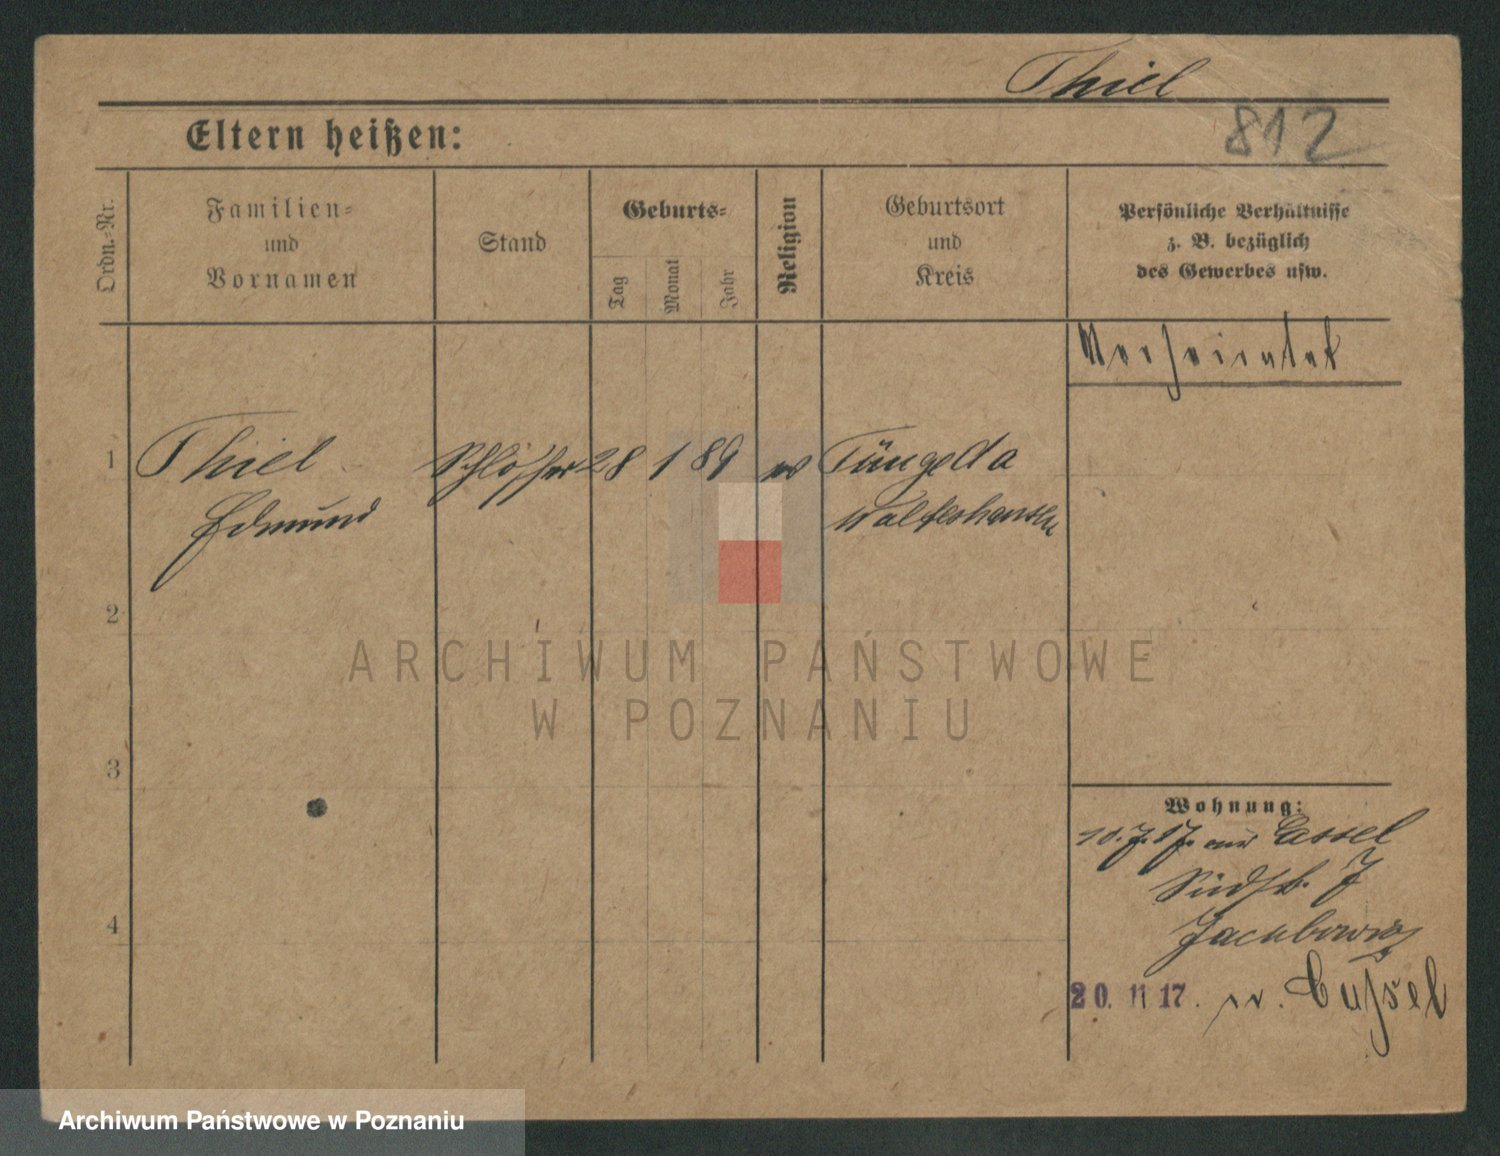 Thiel
812
Eltern heißen:
Ordn.-Nr.
Familien-
und
Vornamen
Stand
Geburts-
Tag
Monat
Jahr
Religion
Geburtsort
und
Kreis
Persönliche Verhältnisse
z. B. bezüglich
des Gewerbes usw.
Verheiratet
1 Thiel Schlosser 28 1 89 ev Tüngeda
Edmund Waltershausen
2
3
4
Wohnung:
10. 7. 17. aus Cassel
Südstr. 7
20. 11 17. n. Cassel
ARCHIWUM PAŃSTWOWE
W POZNANIU
Archiwum Państwowe w Poznaniu